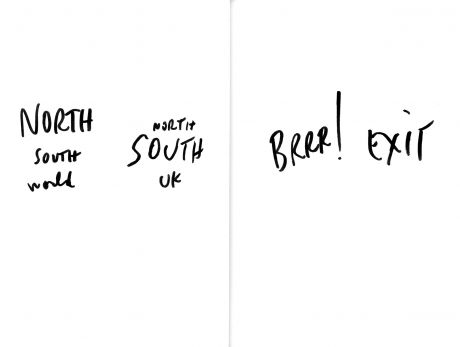 NORTH
SOUTH
world
NORTH
SOUTH
UK
BRRR! EXIT